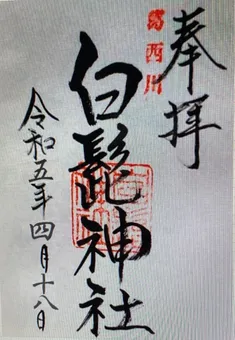 奉拝
葛西川
白髭神社
令和五年四月十八日